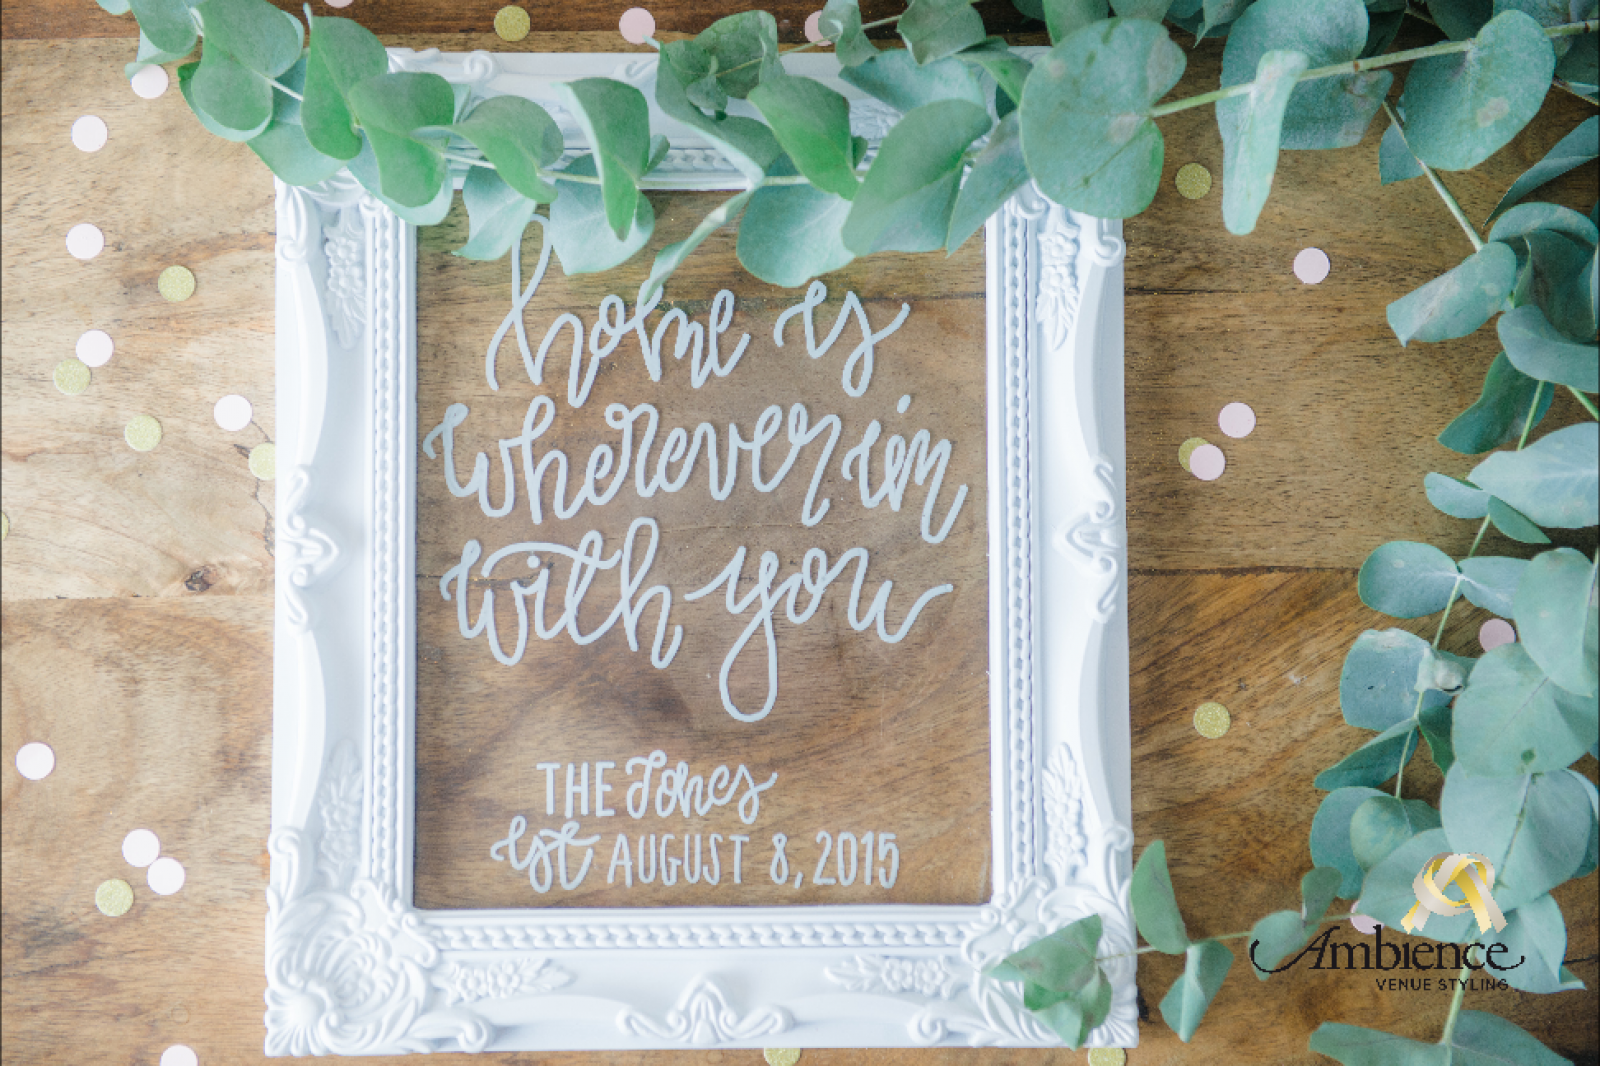 home is
wherever i'm
with you
THE Jones
est AUGUST 8, 2015
Ambience
VENUE STYLING